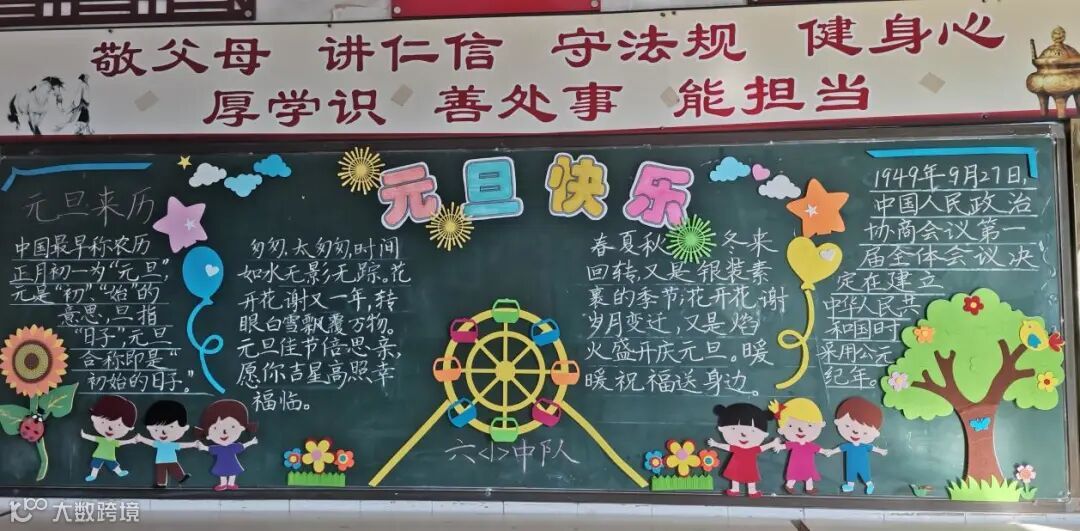 敬父母 讲仁信 守法规 健身心
厚学识 善处事 能担当
元旦快乐
元旦来历
中国最早称农历
正月初一为“元旦,”
元是“初”、“始”的
意思,旦指
“日子”,元旦
合称即是“
初始的日子”。
匆匆,太匆匆,时间
如水无影无踪。花
开花谢又一年,转
眼白雪飘覆万物。
元旦佳节倍思亲,
愿你吉星高照幸
福临。
春夏秋 冬来
回转,又是银装素
裹的季节;花开花谢
岁月变迁,又是焰
火盛开庆元旦。暖
暖祝福送身边。
1949年9月27日,
中国人民政治
协商会议第一
届全体会议决
定在建立
中华人民共
和国时
采用公元
纪年。
六<1>中队
大数跨境